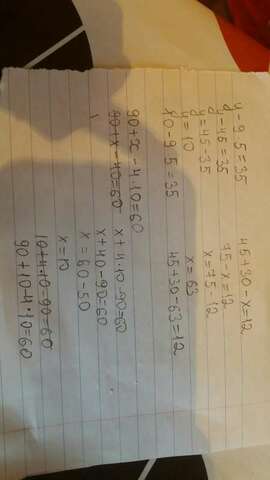 y-9·5=35 45+30-x=12
y-45=35 75-x=12
y=45-35 x=75-12
y=10 x=63
10-9·5=35 45+30-63=12
90+x-4·10=60
90+x-40=60 x+4·10-90=60
x+40-90=60
x=60-50
x=10
10+4·10-90=60
90+10-4·10=60